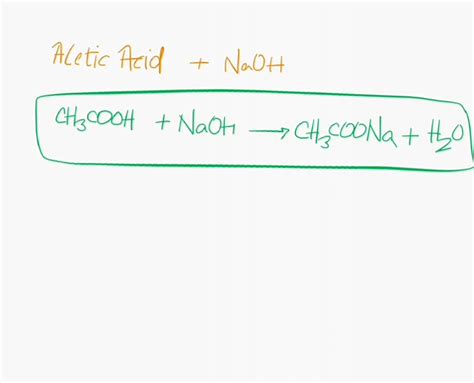 Acetic Acid + NaOH
CH₃COOH + NaOH ⟶ CH₃COONa + H₂O